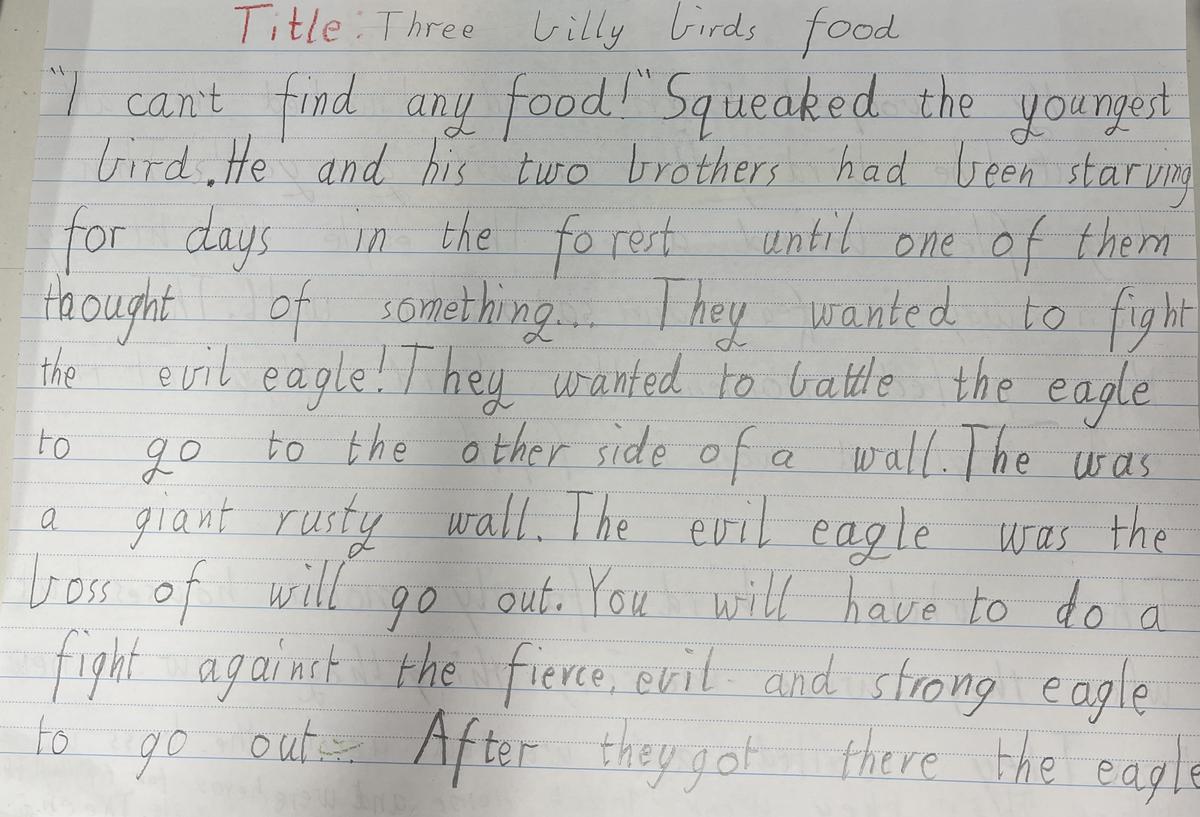 Title: Three billy birds food
"I can't find any food!" Squeaked the youngest
bird. He and his two brothers had been starving
for days in the forest until one of them
thought of something... They wanted to fight
the evil eagle! They wanted to battle the eagle
to go to the other side of a wall. The was
a giant rusty wall. The evil eagle was the
boss of will go out. You will have to do a
fight against the fierce, evil and strong eagle
to go out... After they got there the eagle